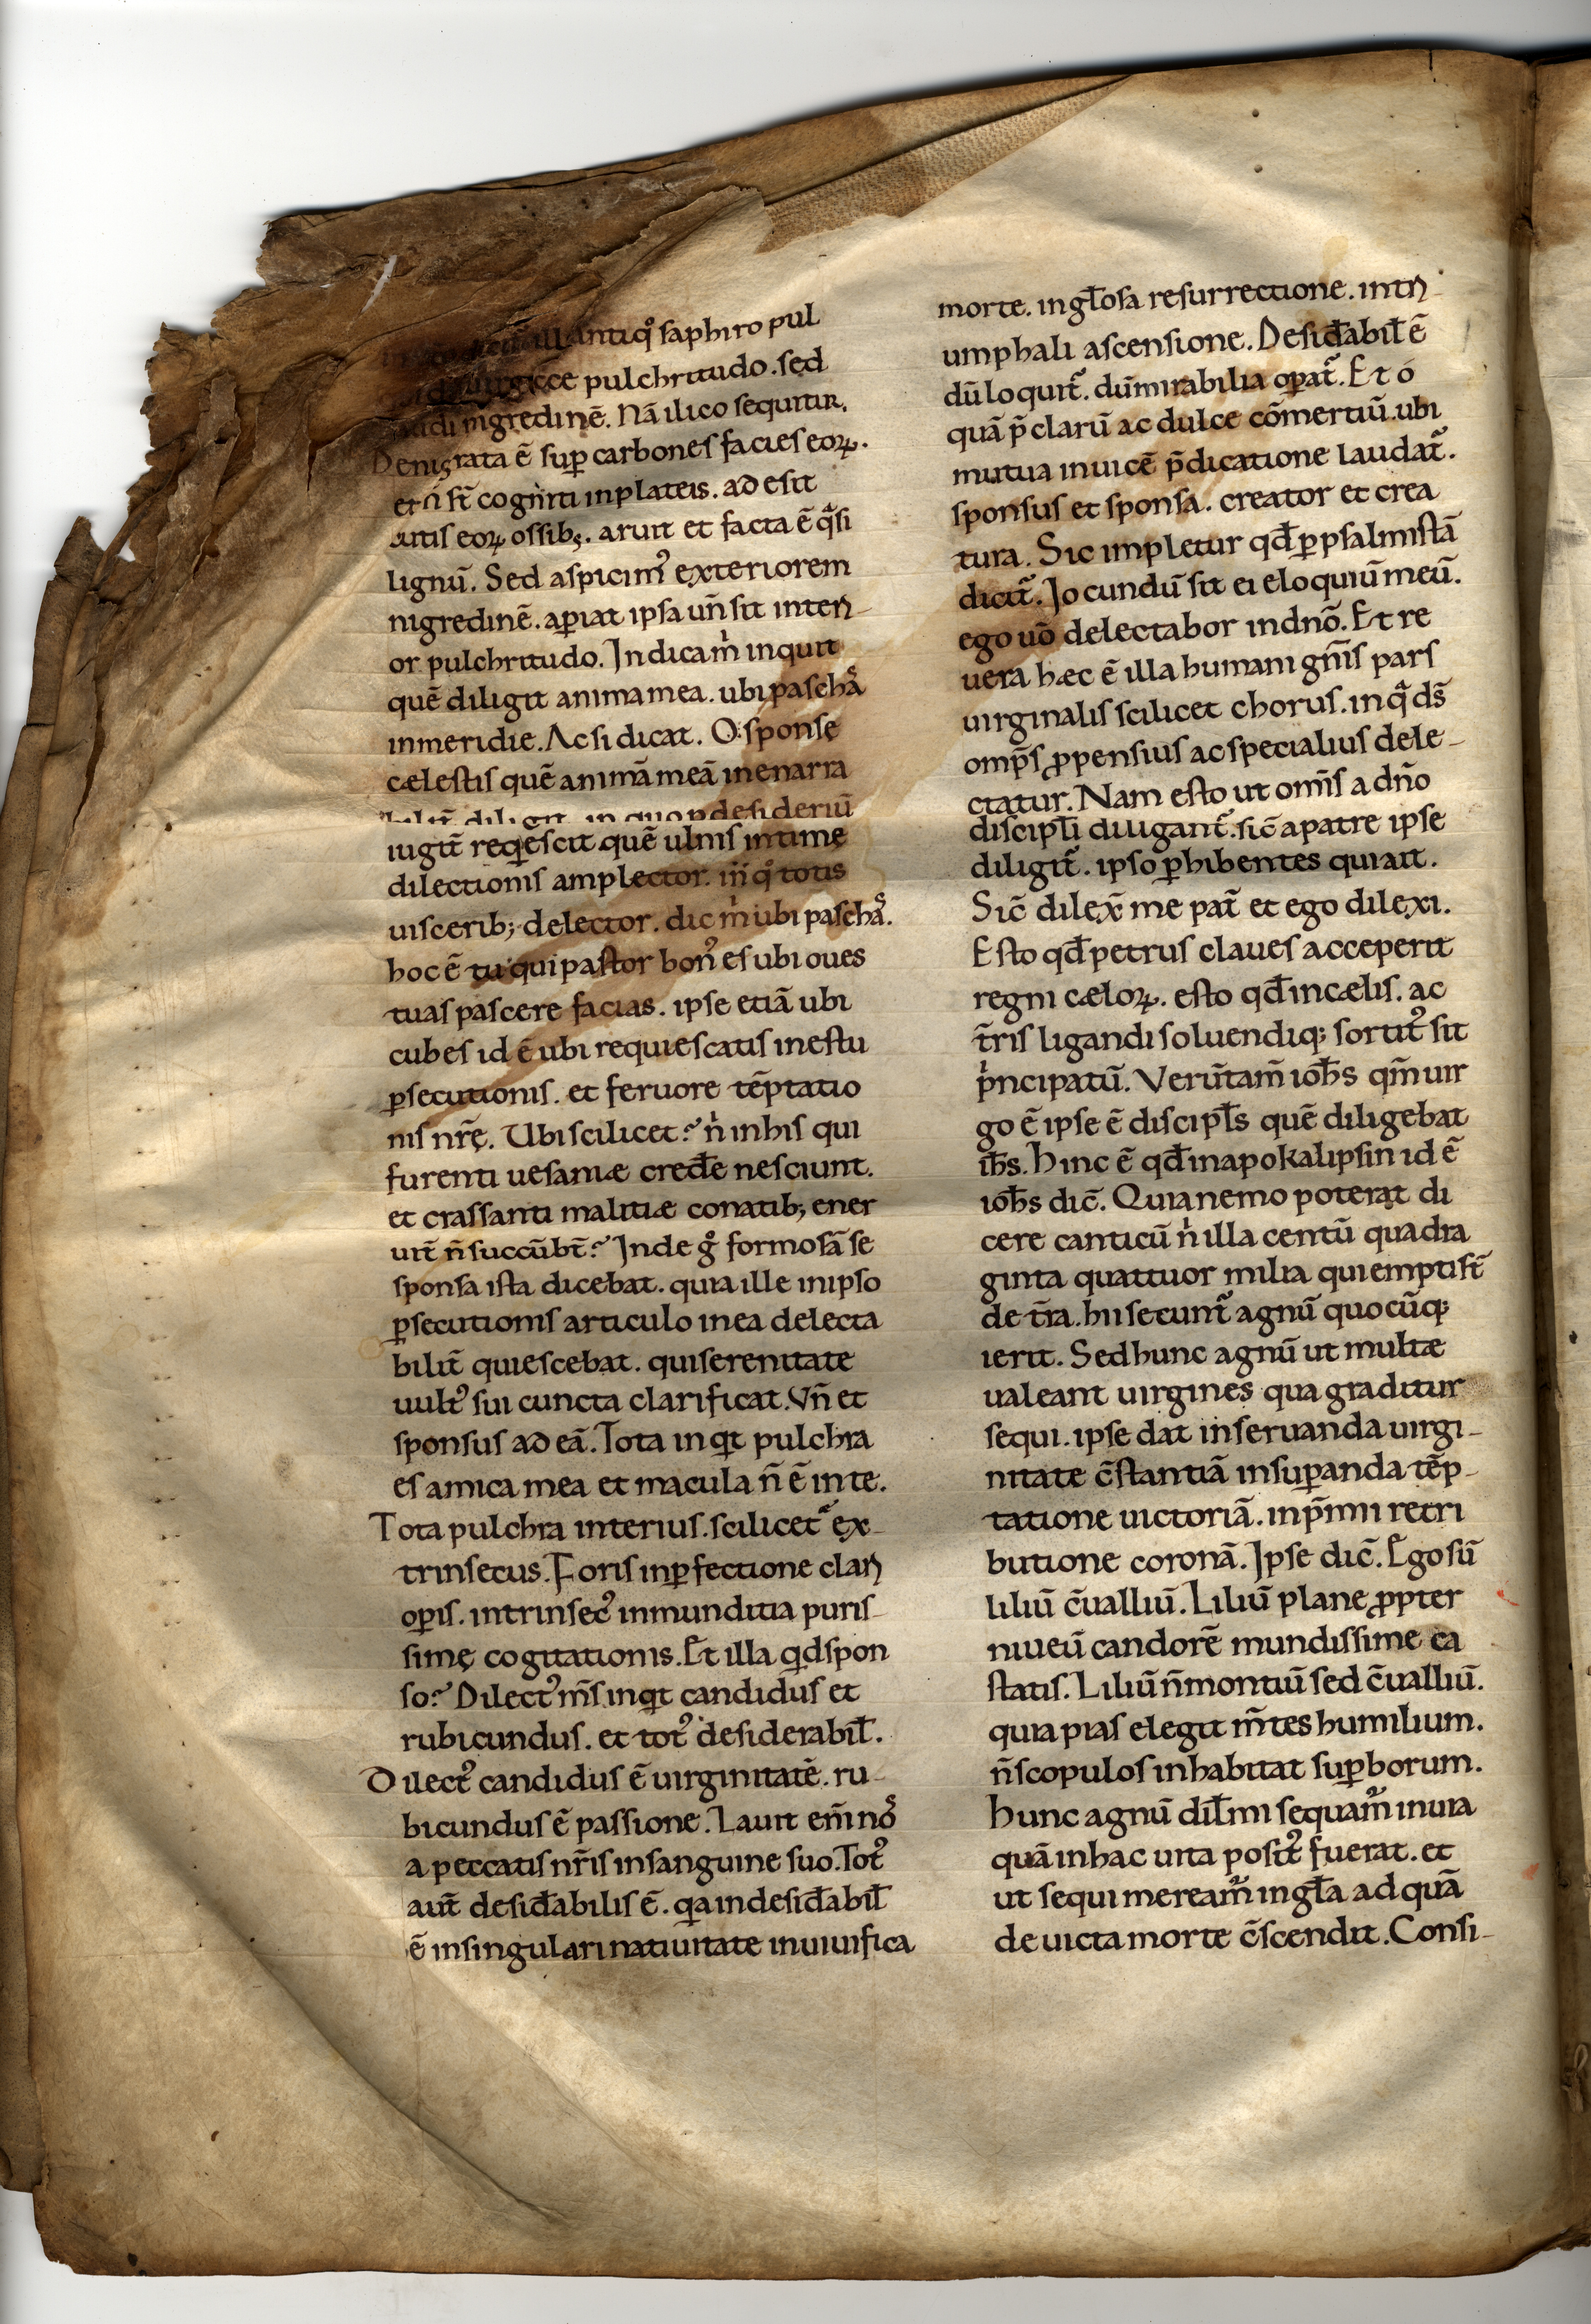 antiq᷒ saphiro pul
pulchritudo. sed
nigredinē. Nā ilico sequitur.
Denigrata ē suꝑ carbones facies eoꝝ.
et ñ st̄ cogniti in plateis. adesit
cutis eoꝝ ossib;. aruit et facta ē qͣsi
lignū. Sed aspicim᷒ exteriorem
nigredinē. aꝑiat ipsa un̄ sit interi-
or pulchritudo. Indica m̍ inquit
quē diligit anima mea. ubi pascha᷒
in meridie. Ac si dicat. O sponse
cælestis quē animā meā inenarra
bilit̄ diligit. in quo ꝑ desideriū
iugit̄ reqͥescit. quē ulnis intimę
dilectionis amplector. in qͦ totis
uiscerib; delector. dic m̍ ubi pascha᷒.
hoc ē tu qui pastor bon᷒ es ubi oues
tuas pascere facias. ipse etiā ubi
cubes id ē ubi requiescatis in estu
ꝑsecutionis. et feruore tēptatio
nis nr̄ę. Ubi scilicet? n̍ in his qui
furenti uesaniæ ceđe nesciunt.
et crassanti malitiæ conatib; ener
uit̄ n̄ succūbt̄? Inde gͦ formosā se
sponsa ista dicebat. quia ille in ipso
ꝑsecutionis articulo in ea delecta
bilit̄ quiescebat. qui serenitate
uult᷒ sui cuncta clarificat. Vn̄ et
sponsus ad eā. Tota inqͥt pulchra
es amica mea et macula n̄ ē in te.
Tota pulchra interius. scilicet ͛ ex-
trinsecus. Foris in ꝑfectione clari
oꝑis. intrinsec᷒ in munditia puris-
simę cogitationis. Et illa qͥd spon
so? Dilect᷒ m̄s inqͥt candidus et
rubicundus. et tot᷒ desiderabil̄.
Dilect᷒ candidus ē uirginitatē. ru-
bicundus ē passione. Lauit em̄ no᷒
a peccatis nr̄is in sanguine suo. Tot᷒
aut̄ desiđabilis ē. qͥa in desiđabil̄
ē in singulari natiuitate in uiuifica
morte. in gl̄osa resurrectione. in tri-
umphali ascensione. Desiđabil̄ ē
dū loquit᷑. dū mirabilia oꝑat᷑. Et o
quā p̄clarū ac dulce cōmertiū. ubi
mutua inuicē p̄dicatione laudat᷑.
sponsus et sponsa. creator et crea
tura. Sic impletur qđ ꝑ psalmistā
dicit᷑. Jocundū sit ei eloquiū meū.
ego uō delectabor in dnō. Et re
uera hæc ē illa humani gn̄is pars
uirginalis scilicet chorus. in qͣ ds̄
omp̄s ꝓpensius ac specialius dele-
ctatur. Nam esto ut om̄s a dn̄o
discipl̄i diligant᷑. sic̄ a patre ipse
diligit᷑. ipso ꝑhibentes qui ait.
Sic̄ dilex̄ me pat̄ et ego dilexi.
Esto qđ petrus claues acceperit
regni cæloꝝ. esto qđ in cælis. ac
t̄ris ligandi soluendiq; sortit᷒ sit
p̍ncipatū. Verūtam̄ ioħs qm̄ uir
go ē ipse ē discipl̄s quē diligebat
iħs. Hinc ē qđ in apokalipsin id ē
ioħs dic̄. Quia nemo poterat di
cere canticū n̍ illa centū quadra
ginta quattuor milia qui empti st̄
de t̄ra. hii secunt᷑ agnū quocūq;
ierit. Sed hunc agnū ut multæ
ualeant uirgines qua graditur
sequi. ipse dat in seruanda uirgi-
nitate c̄stantiā in suꝑanda tēp-
tatione uictoriā. in p̄mii retri
butione coronā. Ipse dic̄. Ego sū
liliū c̄ualliū. Liliū plane ꝓpter
niueū candorē mundissime ca
statis. Liliū n̄ montiū sed c̄ualliū.
quia pias elegit m̄tes humilium.
n̄ scopulos inhabitat suꝑborum.
Hunc agnū dil̄mi sequam᷑ in uia
quā in hac uita posit᷒ fuerat. et
ut sequi meream᷑ in gl̄a ad quā
deuicta morte c̄scendit. Consi-